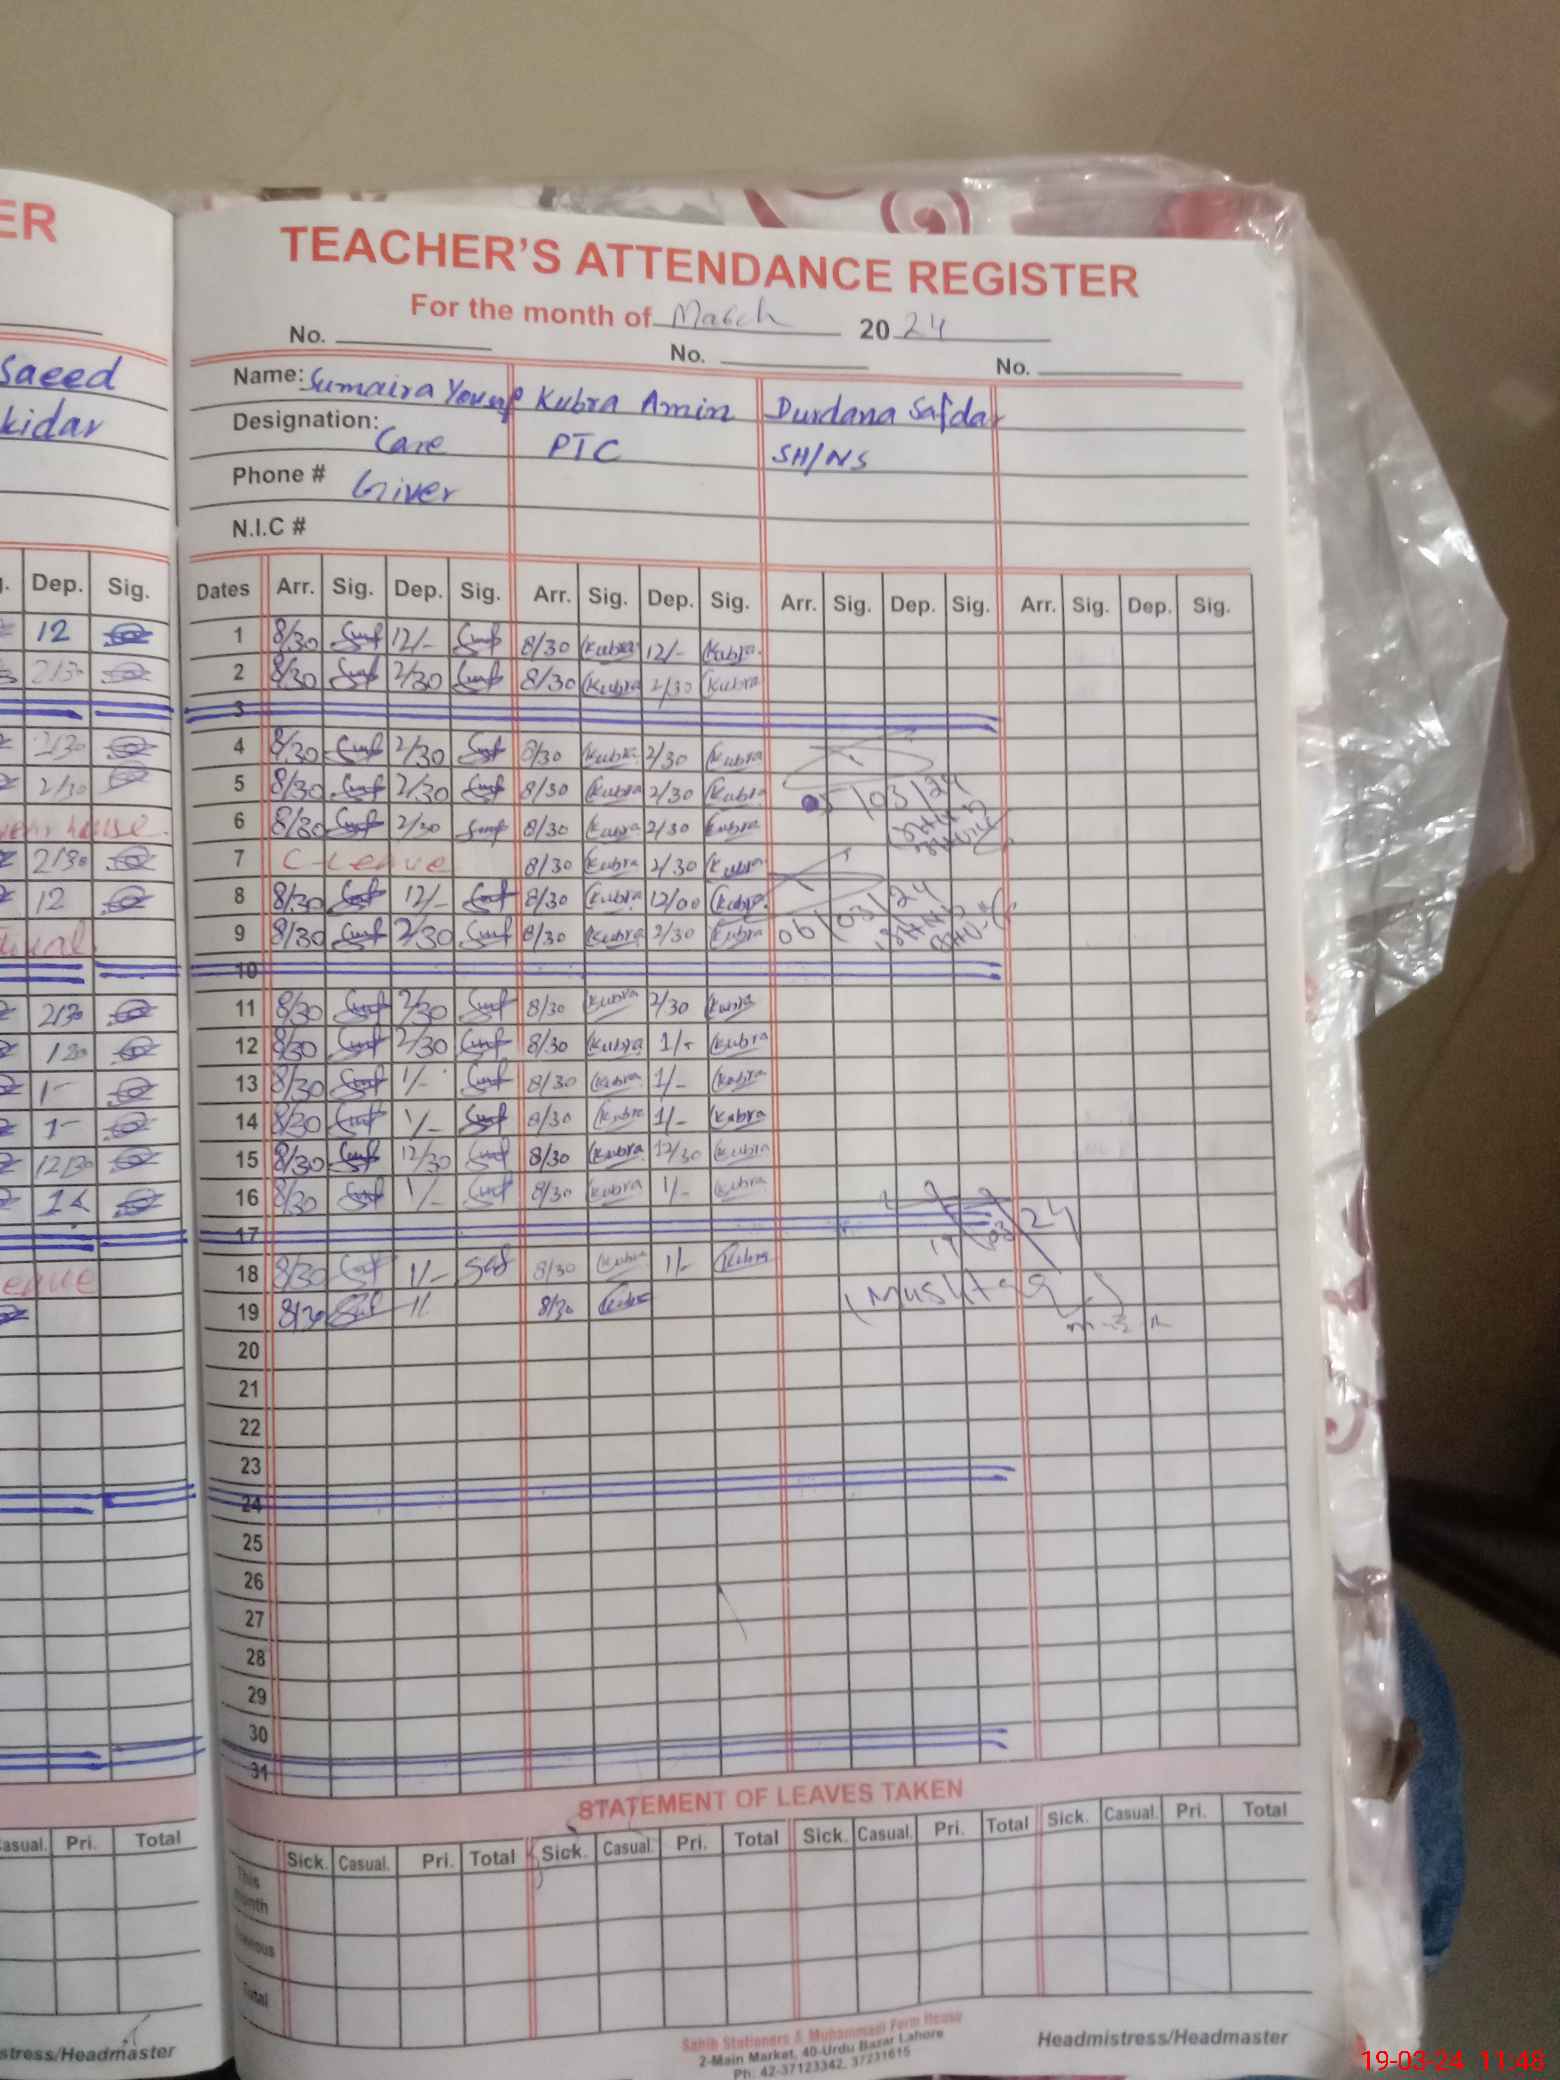 ER
Saeed
kidar
Dep. Sig.
12
2/30
2/30
2/30
2/30
12
2/30
1-
1-
12/30
eave
Casual. Pri. Total
stress/Headmaster
TEACHER'S ATTENDANCE REGISTER
For the month of March 2024
No. No. No.
Name: Sumaira Yousaf Kubra Amin Durdana Safdar
Designation: Care PTC SH/NS
Phone # Giver
N.I.C #
Dates Arr. Sig. Dep. Sig. Arr. Sig. Dep. Sig. Arr. Sig. Dep. Sig. Arr. Sig. Dep. Sig.
1 8/30 12/- 8/30 Kubra 12/- Kubra
2 8/30 2/30 8/30 Kubra 2/30 Kubra
3
4 8/30 2/30 8/30 Kubra 2/30 Kubra
5 8/30 2/30 8/30 Kubra 2/30 Kubra 05/03/24
6 8/30 2/30 8/30 Kubra 2/30 Kubra
7 C-Leave 8/30 Kubra 2/30 Kubra
8 8/30 12/- 8/30 Kubra 12/00 Kubra
9 8/30 2/30 8/30 Kubra 2/30 Kubra 06/03/24
10
11 8/30 2/30 8/30 Kubra 2/30 Kubra
12 8/30 2/30 8/30 Kubra 1/- Kubra
13 8/30 1/- 8/30 Kubra 1/- Kubra
14 8/30 1/- 8/30 Kubra 1/- Kubra
15 8/30 12/30 8/30 Kubra 12/30 Kubra
16 8/30 1/- 8/30 Kubra 1/- Kubra
17
18 8/30 1/- 8/30 Kubra 1/- Kubra
19 8/30 8/30 Kubra (Mushtaq)
20
21
22
23
24
25
26
27
28
29
30
31
STATEMENT OF LEAVES TAKEN
Sick. Casual. Pri. Total Sick. Casual. Pri. Total Sick. Casual. Pri. Total Sick. Casual. Pri. Total
This month
Previous
Total
Sahib Stationers & Muhammadi Form House
2-Main Market, 40-Urdu Bazar Lahore
Ph: 42-37123342, 37231615
Headmistress/Headmaster
19-03-24 11:48